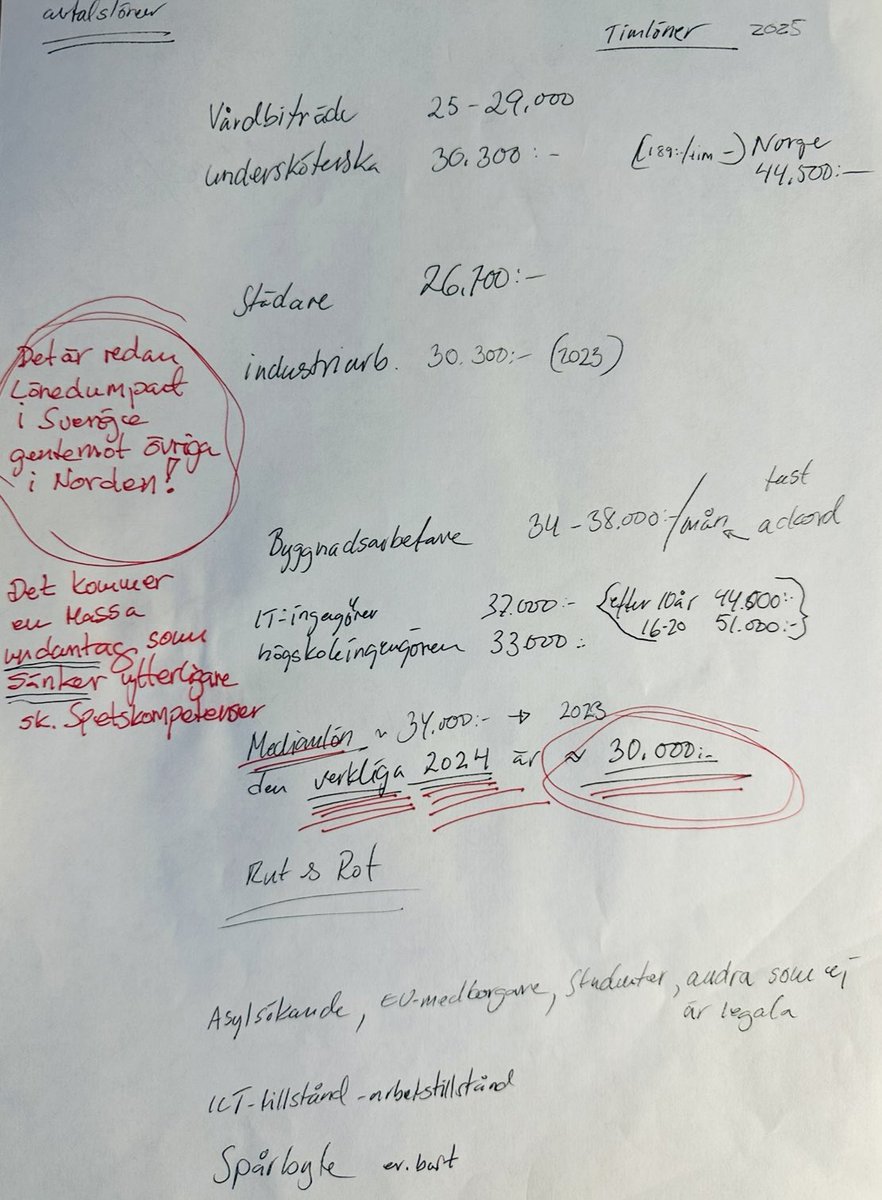 avtalslöner
Timlöner 2025
Vårdbiträde 25-29,000
undersköterska 30.300:- (189:/tim -) Norge
44,500:-
Städare 26,700:-
industriarb. 30.300:- (2023)
Det är redan
Lönedumpat
i Sverige
gentemot övriga
i Norden!
fast
Byggnadsarbetare 34-38.000:-/mån ← ackord
Det kommer
en Massa
undantag som
sänker ytterligare
sk. Spetskompetenser
IT-ingenjörer 37.000:- {efter 10år 44.500:-
16-20 51.000:-}
högskoleingenjören 33000:-
Medianlön ~ 34.000:- → 2023
den verkliga 2024 är ≈ 30.000:-
Rut & Rot
Asylsökande, EU-medborgare, Studenter, andra som ej
är legala
ICT-tillstånd - arbetstillstånd
Spårbyte ev. bort